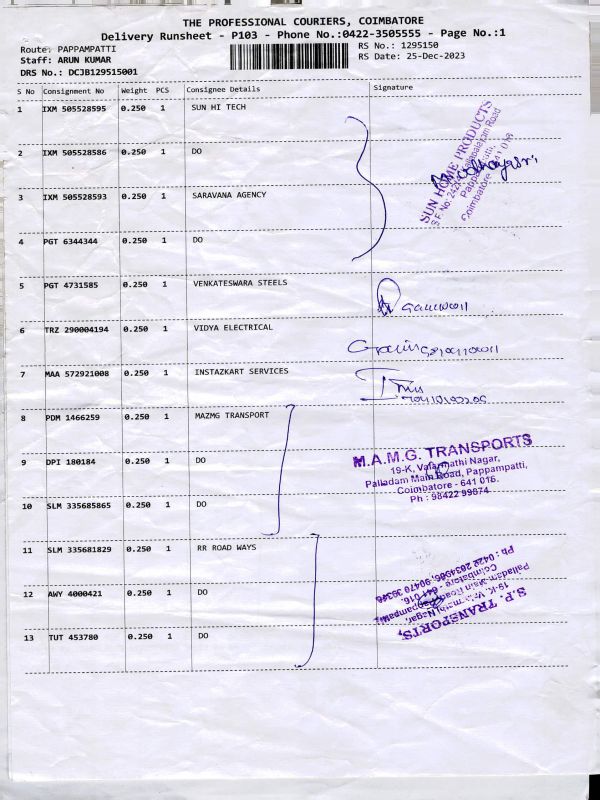 THE PROFESSIONAL COURIERS, COIMBATORE
Delivery Runsheet - P103 - Phone No.:0422-3505555 - Page No.:1
Route: PAPPAMPATTI
RS No.: 1295150
Staff: ARUN KUMAR
RS Date: 25-Dec-2023
DRS No.: DCJB129515001
S No Consignment No Weight PCS Consignee Details Signature
1 IXM 505528595 0.250 1 SUN HI TECH
2 IXM 505528586 0.250 1 DO
3 IXM 505528593 0.250 1 SARAVANA AGENCY
4 PGT 6344344 0.250 1 DO
5 PGT 4731585 0.250 1 VENKATESWARA STEELS
6 TRZ 290004194 0.250 1 VIDYA ELECTRICAL
7 MAA 572921008 0.250 1 INSTAZKART SERVICES
8 PDM 1466259 0.250 1 MAZMG TRANSPORT
9 DPI 180184 0.250 1 DO
10 SLM 335685865 0.250 1 DO
11 SLM 335681829 0.250 1 RR ROAD WAYS
12 AWY 4000421 0.250 1 DO
13 TUT 453780 0.250 1 DO
SUN HOME PRODUCTS
Coimbatore
M.A.M.G. TRANSPORTS
19-K, Valarmathi Nagar,
Palladam Main Road, Pappampatti,
Coimbatore - 641 016.
Ph : 98422 99674
S.P. TRANSPORTS,
19-K, Nagar,
Palladam Main Road, Pappampatti,
Coimbatore - 641 016.